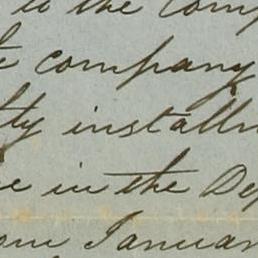 to the Comp
company
ty installm
in the Dep
Januar